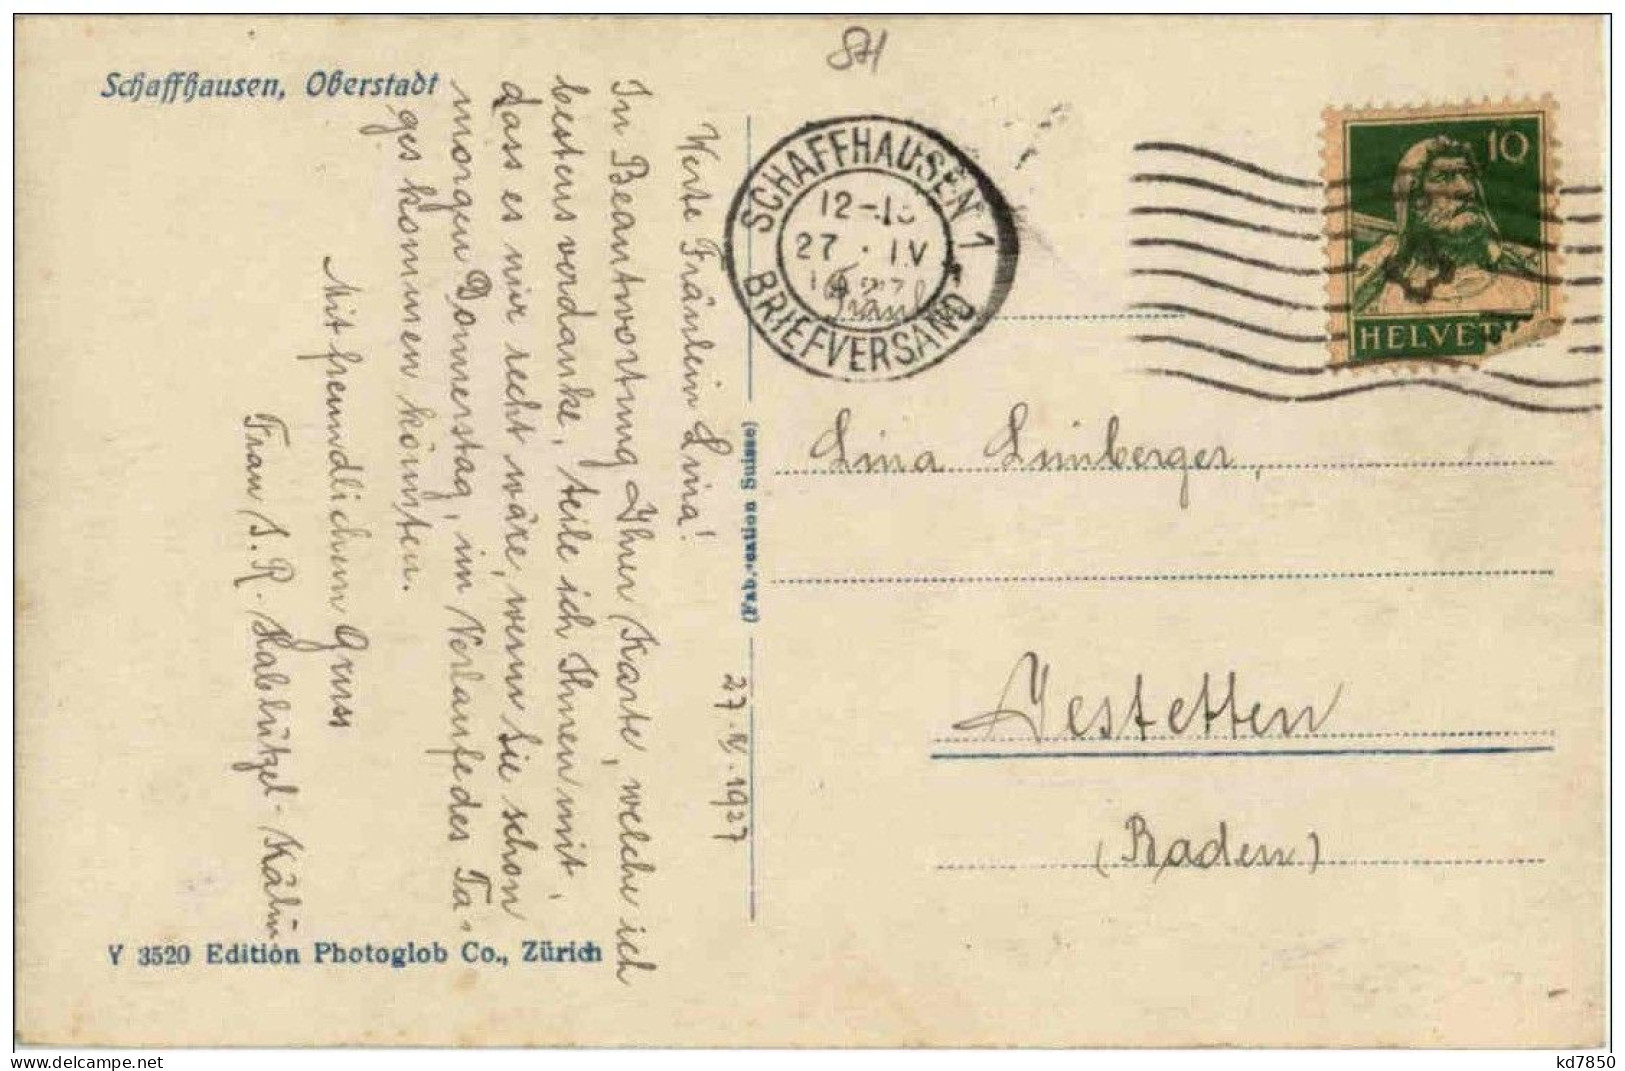 SH
Schaffhausen, Oberstadt
Werte Fräulein Lina!
In Beantwortung Ihrer Karte, welche ich
bestens verdanke, teile ich Ihnen mit,
dass es mir recht wäre, wenn Sie schon
morgen Donnerstag, im Verlaufe des Ta-
ges kommen könnten.
Mit freundlichem Gruss
Frau S. R. Hablützel-Kälin
27.IV.1927
Y 3520 Edition Photoglob Co., Zürich
(Fabrication Suisse)
SCHAFFHAUSEN 1
12-
27 · IV
BRIEFVERSAND
10
HELVETI
Fräul.
Lina Limberger,
Jestetten
(Baden)
kd7850